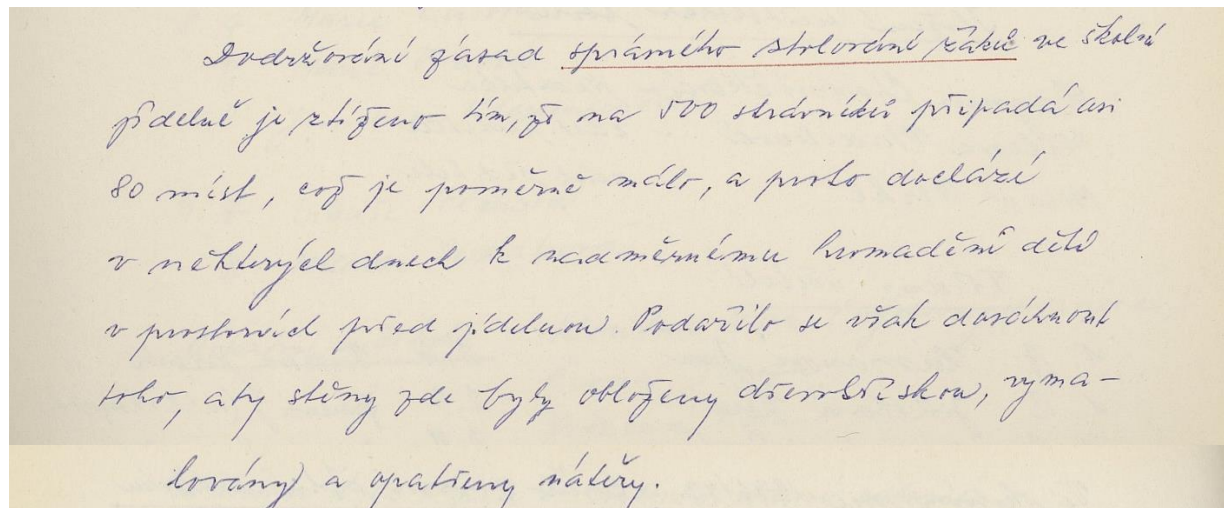 Dodržování zásad správného stolování žáků ve školní
jídelně je ztíženo tím, že na 500 strávníků připadá asi
80 míst, což je poměrně málo, a proto dochází
v některých dnech k nadměrnému hromadění dětí
v prostorách před jídelnou. Podařilo se však dosáhnout
toho, aby stěny zde byly obloženy dřevotřískou, vyma-
lovány a opatřeny nátěry.